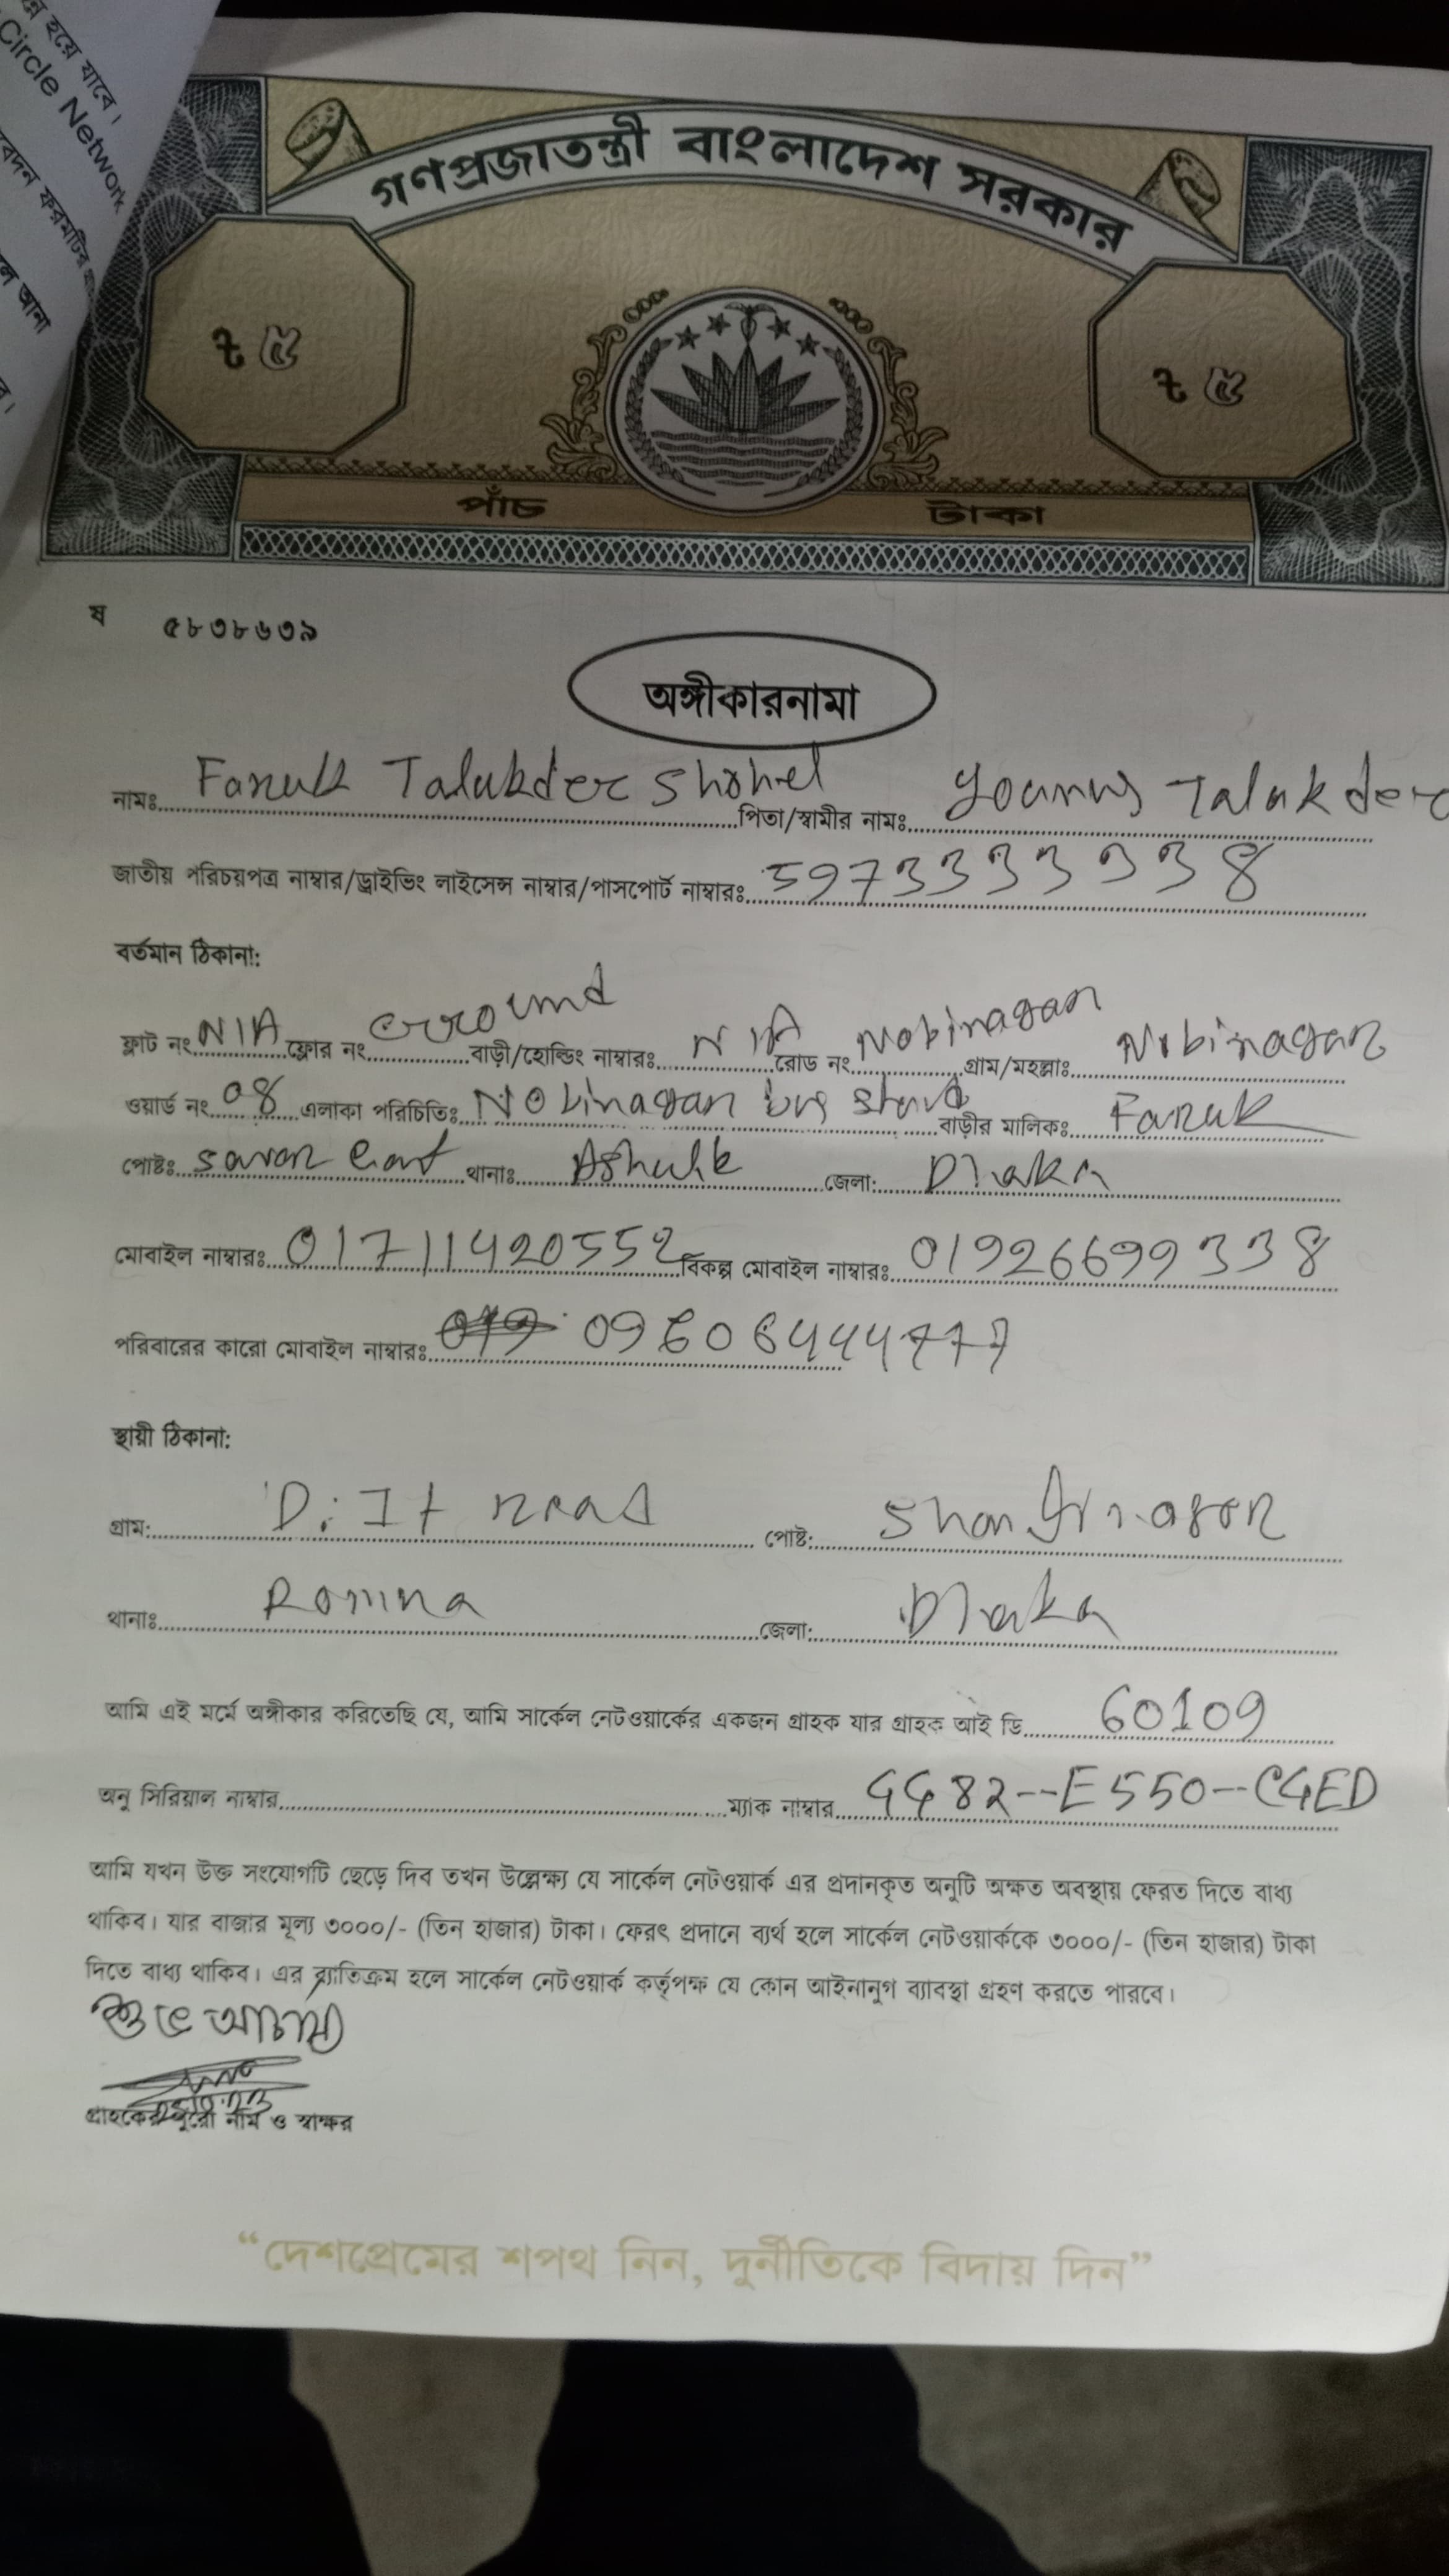 ন্ন হয়ে যাবে।
Circle Network
বেদন ফরমটির
আনা
গণপ্রজাতন্ত্রী বাংলাদেশ সরকার
৳ ৫ ৳ ৫
পাঁচ টাকা
ষ ৫৮৩৮৬৩৯
অঙ্গীকারনামা
নামঃ Faruk Talukder Shohel পিতা/স্বামীর নামঃ Younus Talukder
জাতীয় পরিচয়পত্র নাম্বার/ড্রাইভিং লাইসেন্স নাম্বার/পাসপোর্ট নাম্বারঃ 5973333338
বর্তমান ঠিকানা:
ফ্লাট নং N/A ফ্লোর নং Ground বাড়ী/হোল্ডিং নাম্বারঃ N/A রোড নং Nobinagar গ্রাম/মহল্লাঃ Nobinagar
ওয়ার্ড নং 08 এলাকা পরিচিতিঃ Nobinagar bus stand বাড়ীর মালিকঃ Faruk
পোষ্টঃ savar Cant থানাঃ Ashulia জেলা: Dhaka
মোবাইল নাম্বারঃ 01711420552 বিকল্প মোবাইল নাম্বারঃ 01926699338
পরিবারের কারো মোবাইল নাম্বারঃ 09606444777
স্থায়ী ঠিকানা:
গ্রাম: D.I.t road পোষ্ট: Shantinagar
থানাঃ Romna জেলা: Dhaka
আমি এই মর্মে অঙ্গীকার করিতেছি যে, আমি সার্কেল নেটওয়ার্কের একজন গ্রাহক যার গ্রাহক আই ডি 60109
অনু সিরিয়াল নাম্বার ম্যাক নাম্বার GG82--E550--CGED
আমি যখন উক্ত সংযোগটি ছেড়ে দিব তখন উল্লেক্ষ্য যে সার্কেল নেটওয়ার্ক এর প্রদানকৃত অনুটি অক্ষত অবস্থায় ফেরত দিতে বাধ্য
থাকিব। যার বাজার মূল্য ৩০০০/- (তিন হাজার) টাকা। ফেরৎ প্রদানে ব্যর্থ হলে সার্কেল নেটওয়ার্ককে ৩০০০/- (তিন হাজার) টাকা
দিতে বাধ্য থাকিব। এর ব্যাতিক্রম হলে সার্কেল নেটওয়ার্ক কর্তৃপক্ষ যে কোন আইনানুগ ব্যাবস্থা গ্রহণ করতে পারবে।
গ্রাহকের পুরো নাম ও স্বাক্ষর
“দেশপ্রেমের শপথ নিন, দুর্নীতিকে বিদায় দিন”